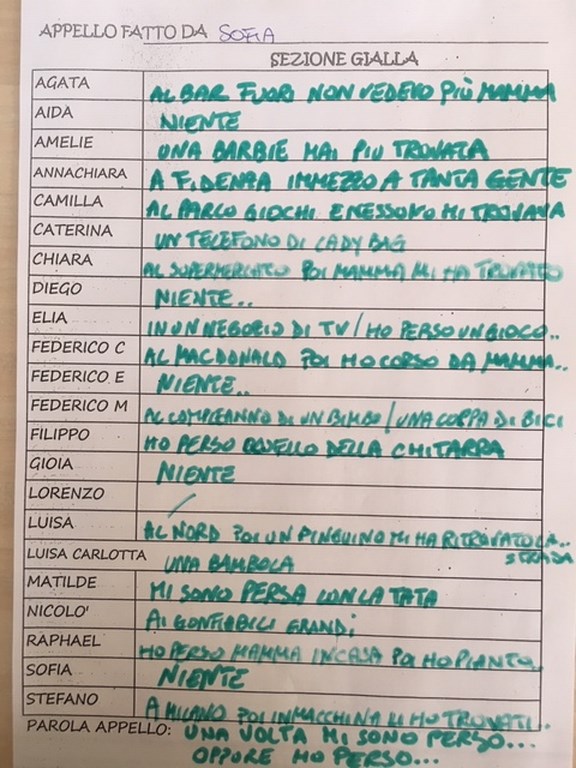 APPELLO FATTO DA SOFIA
SEZIONE GIALLA
AGATA AL BAR FUORI NON VEDEVO PIÙ MAMMA
AIDA NIENTE
AMELIE UNA BARBIE MAI PIU TROVATA
ANNACHIARA A FIDENZA IMMEZZO A TANTA GENTE
CAMILLA AL PARCO GIOCHI E NESSUNO MI TROVAVA
CATERINA UN TELEFONO DI LADY BAG
CHIARA AL SUPERMERCATO POI MAMMA MI HA TROVATO
DIEGO NIENTE..
ELIA IN UN NEGOZIO DI TV / HO PERSO UN GIOCO..
FEDERICO C AL MACDONALD POI HO CORSO DA MAMMA..
FEDERICO E NIENTE..
FEDERICO M AL COMPLEANNO DI UN BIMBO / UNA COPPA DI BICI
FILIPPO HO PERSO QUELLO DELLA CHITARRA
GIOIA NIENTE
LORENZO /
LUISA AL NORD POI UN PINGUINO MI HA RITROVATO LA..
STRADA
LUISA CARLOTTA UNA BAMBOLA
MATILDE MI SONO PERSA CON LA TATA
NICOLO' AI GONFIABILI GRANDI
RAPHAEL HO PERSO MAMMA IN CASA POI HO PIANTO
SOFIA NIENTE
STEFANO A MILANO POI IN MACCHINA LI HO TROVATI..
PAROLA APPELLO: UNA VOLTA MI SONO PERSO...
OPPURE HO PERSO...